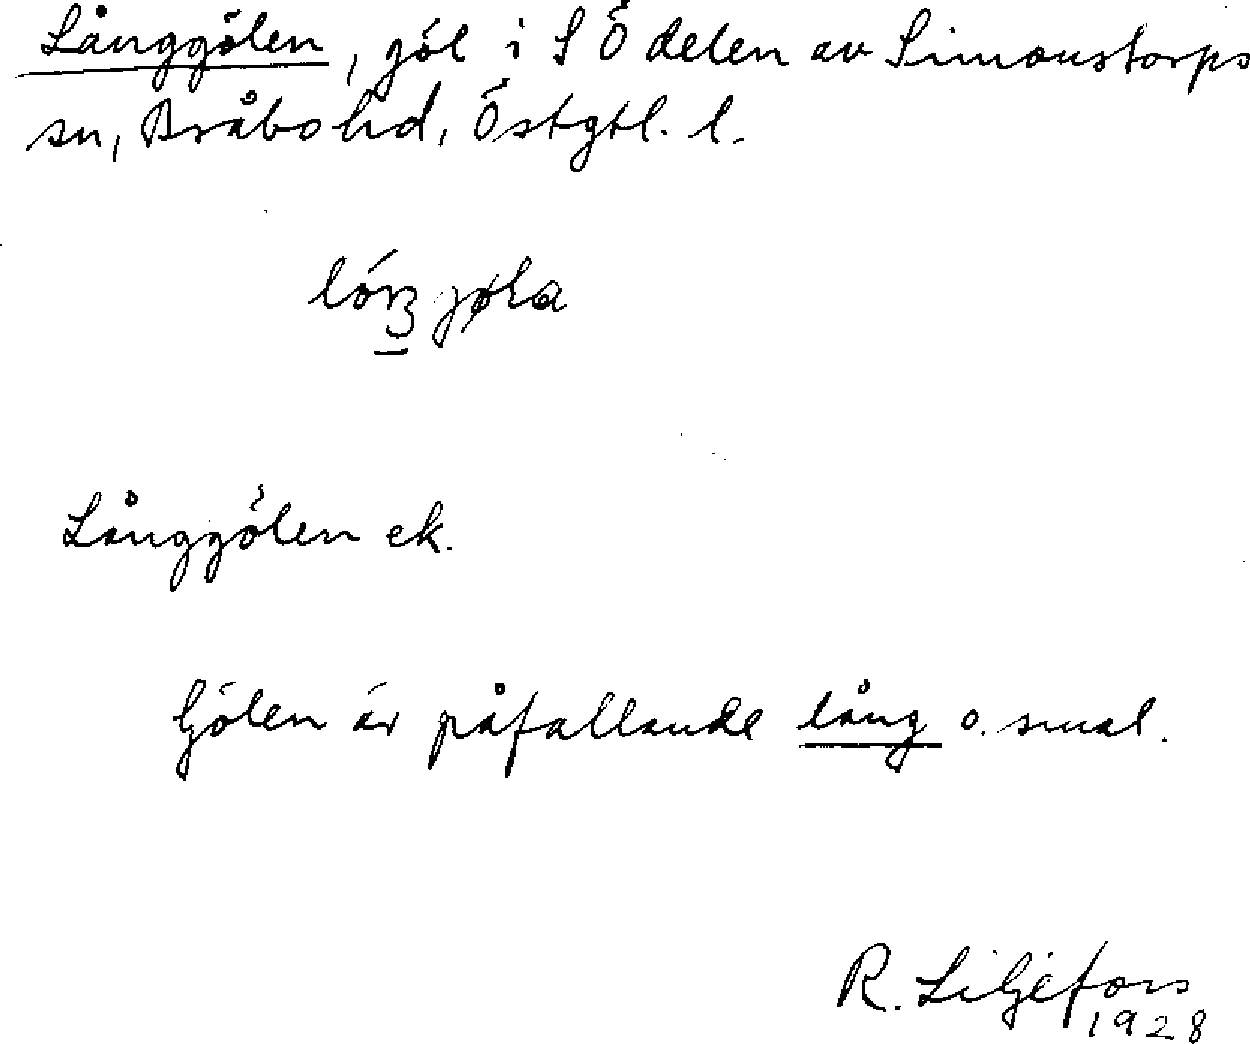 Långgölen, göl i S Ö delen av Simonstorps
sn, Bråbo hd, Östgtl. l.
Långgölen ek.
Gölen är påfallande lång o. smal.
R. Liljefors
1928